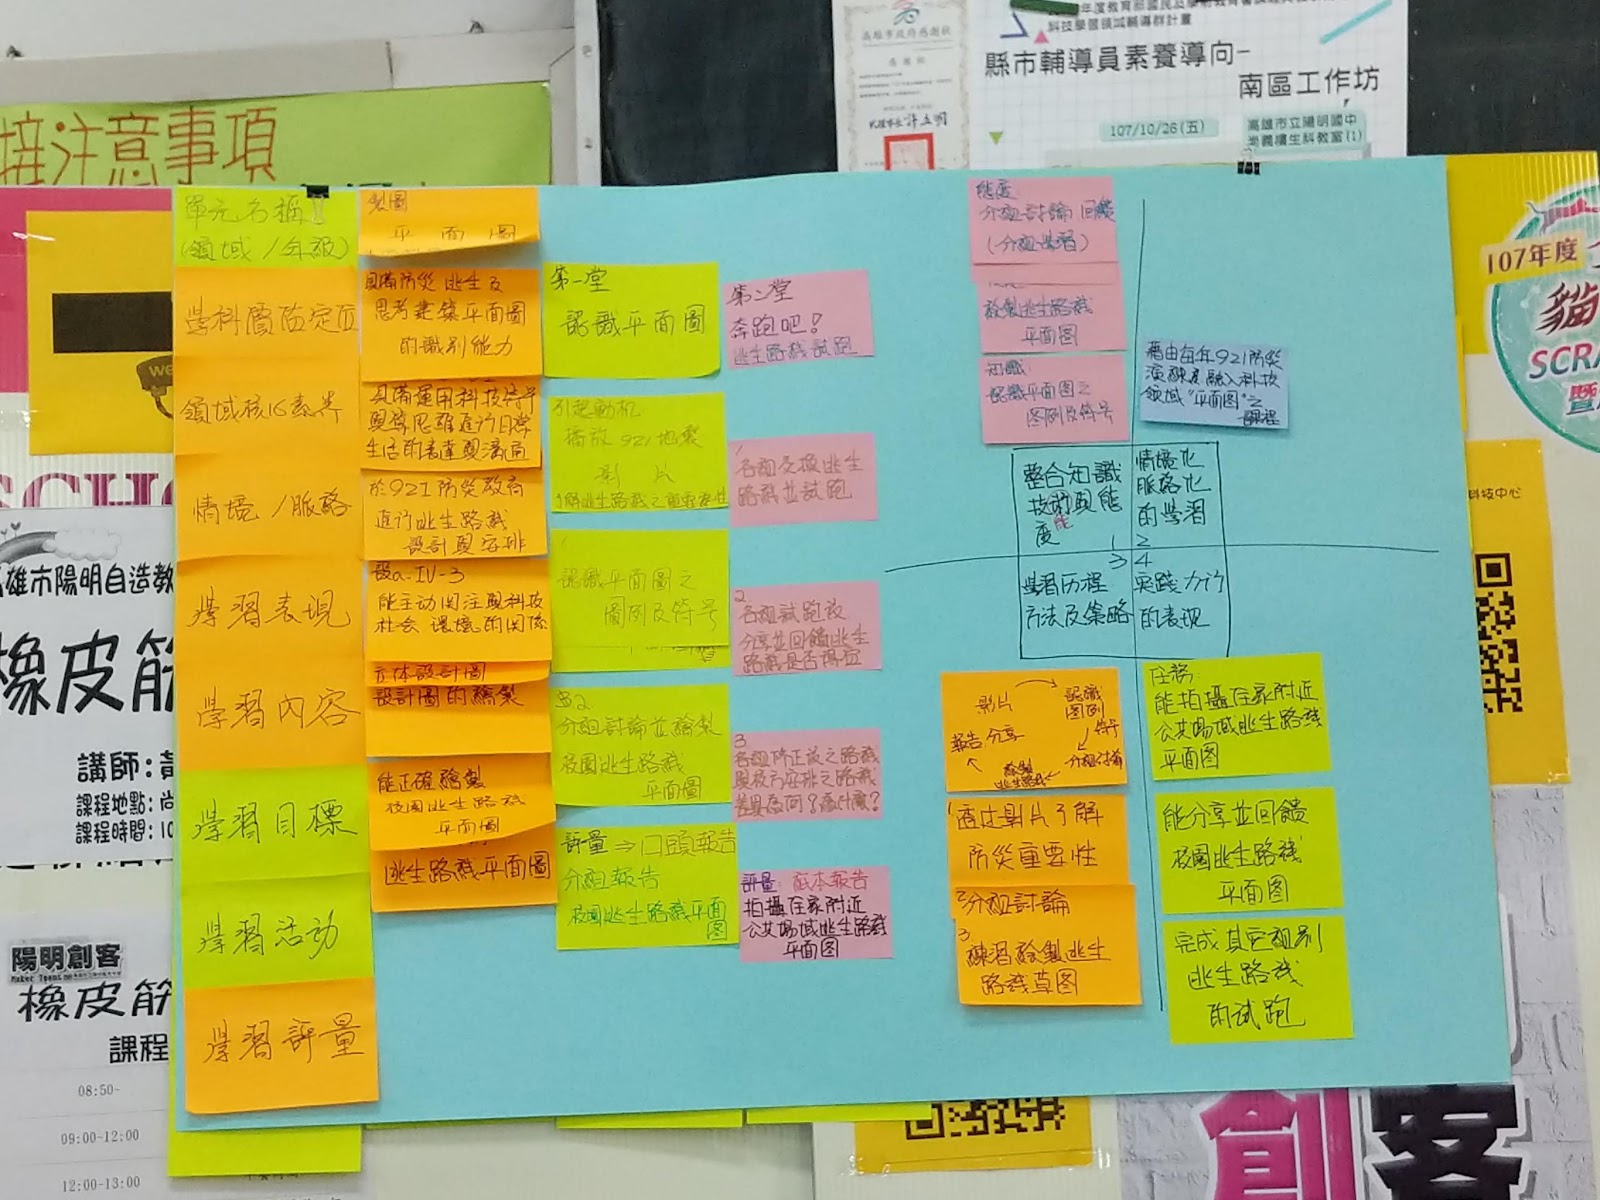 接注意事項
高雄市政府感謝狀
科技學習領域輔導群計畫
縣市輔導員素養導向-
南區工作坊
107/10/26(五)
高雄市立陽明國中
尚義樓生科教室(1)
單元名稱
(領域/年級)
學科價值定位
領域核心素養
情境/脈絡
學習表現
學習內容
學習目標
學習活動
學習評量
製圖
平面圖
具備防災逃生及
思考建築平面圖
的識別能力
具備運用科技符號
與算思維進行日常
生活的表達與溝通
於921防災教育
進行逃生路線
設計與安排
設a-IV-3
能主動關注與科技
社會 環境的關係
立体設計圖
設計圖的繪製
能正確繪製
校園逃生路線
平面圖
逃生路線平面圖
第一堂
認識平面圖
引起動机
播放921地震
影片
了解逃生路線之重要性
認識平面圖之
圖例及符號
分組討論並繪製
校園逃生路線
平面圖
評量⇒口頭報告
分組報告
校園逃生路線平面
图
第二堂
奔跑吧!
逃生路線試跑
1
各組交換逃生
路線並試跑
2
各組試跑後
分享並回饋逃生
路線是否得宜
3
各組修正後之路線
與校方安排之路線
差異為何?為什麼?
評量:紙本報告
拍攝住家附近
公共場域逃生路線
平面図
態度:
分組討論 回饋
(分組學習)
繪製逃生路線
平面图
知識:
認識平面图之
图例及符号
藉由每年921防災
演練融入科技
領域"平面图"之
課程
整合知識
技術與態
度
能
1
情境化
脈絡化
的學習
2
3
學習历程
方法及策略
4
實踐力行
的表現
影片
認識
图例
符号
分組討論
繪製
逃生路線
報告分享
1透过影片了解
防災重要性
2分組討論
3
練習繪製逃生
路線草图
任務:
能拍攝住家附近
公共場域逃生路線
平面图
能分享並回饋
校園逃生路線
平面图
完成其它組別
逃生路線
的試跑
107年度
貓
SCRA
暨
科技中心
we
SCHO
高雄市陽明自造教
橡皮筋
講師:黃
課程地點:尚
課程時間:10
陽明創客
橡皮筋
課程
08:50-
09:00-12:00
12:00-13:00
創客